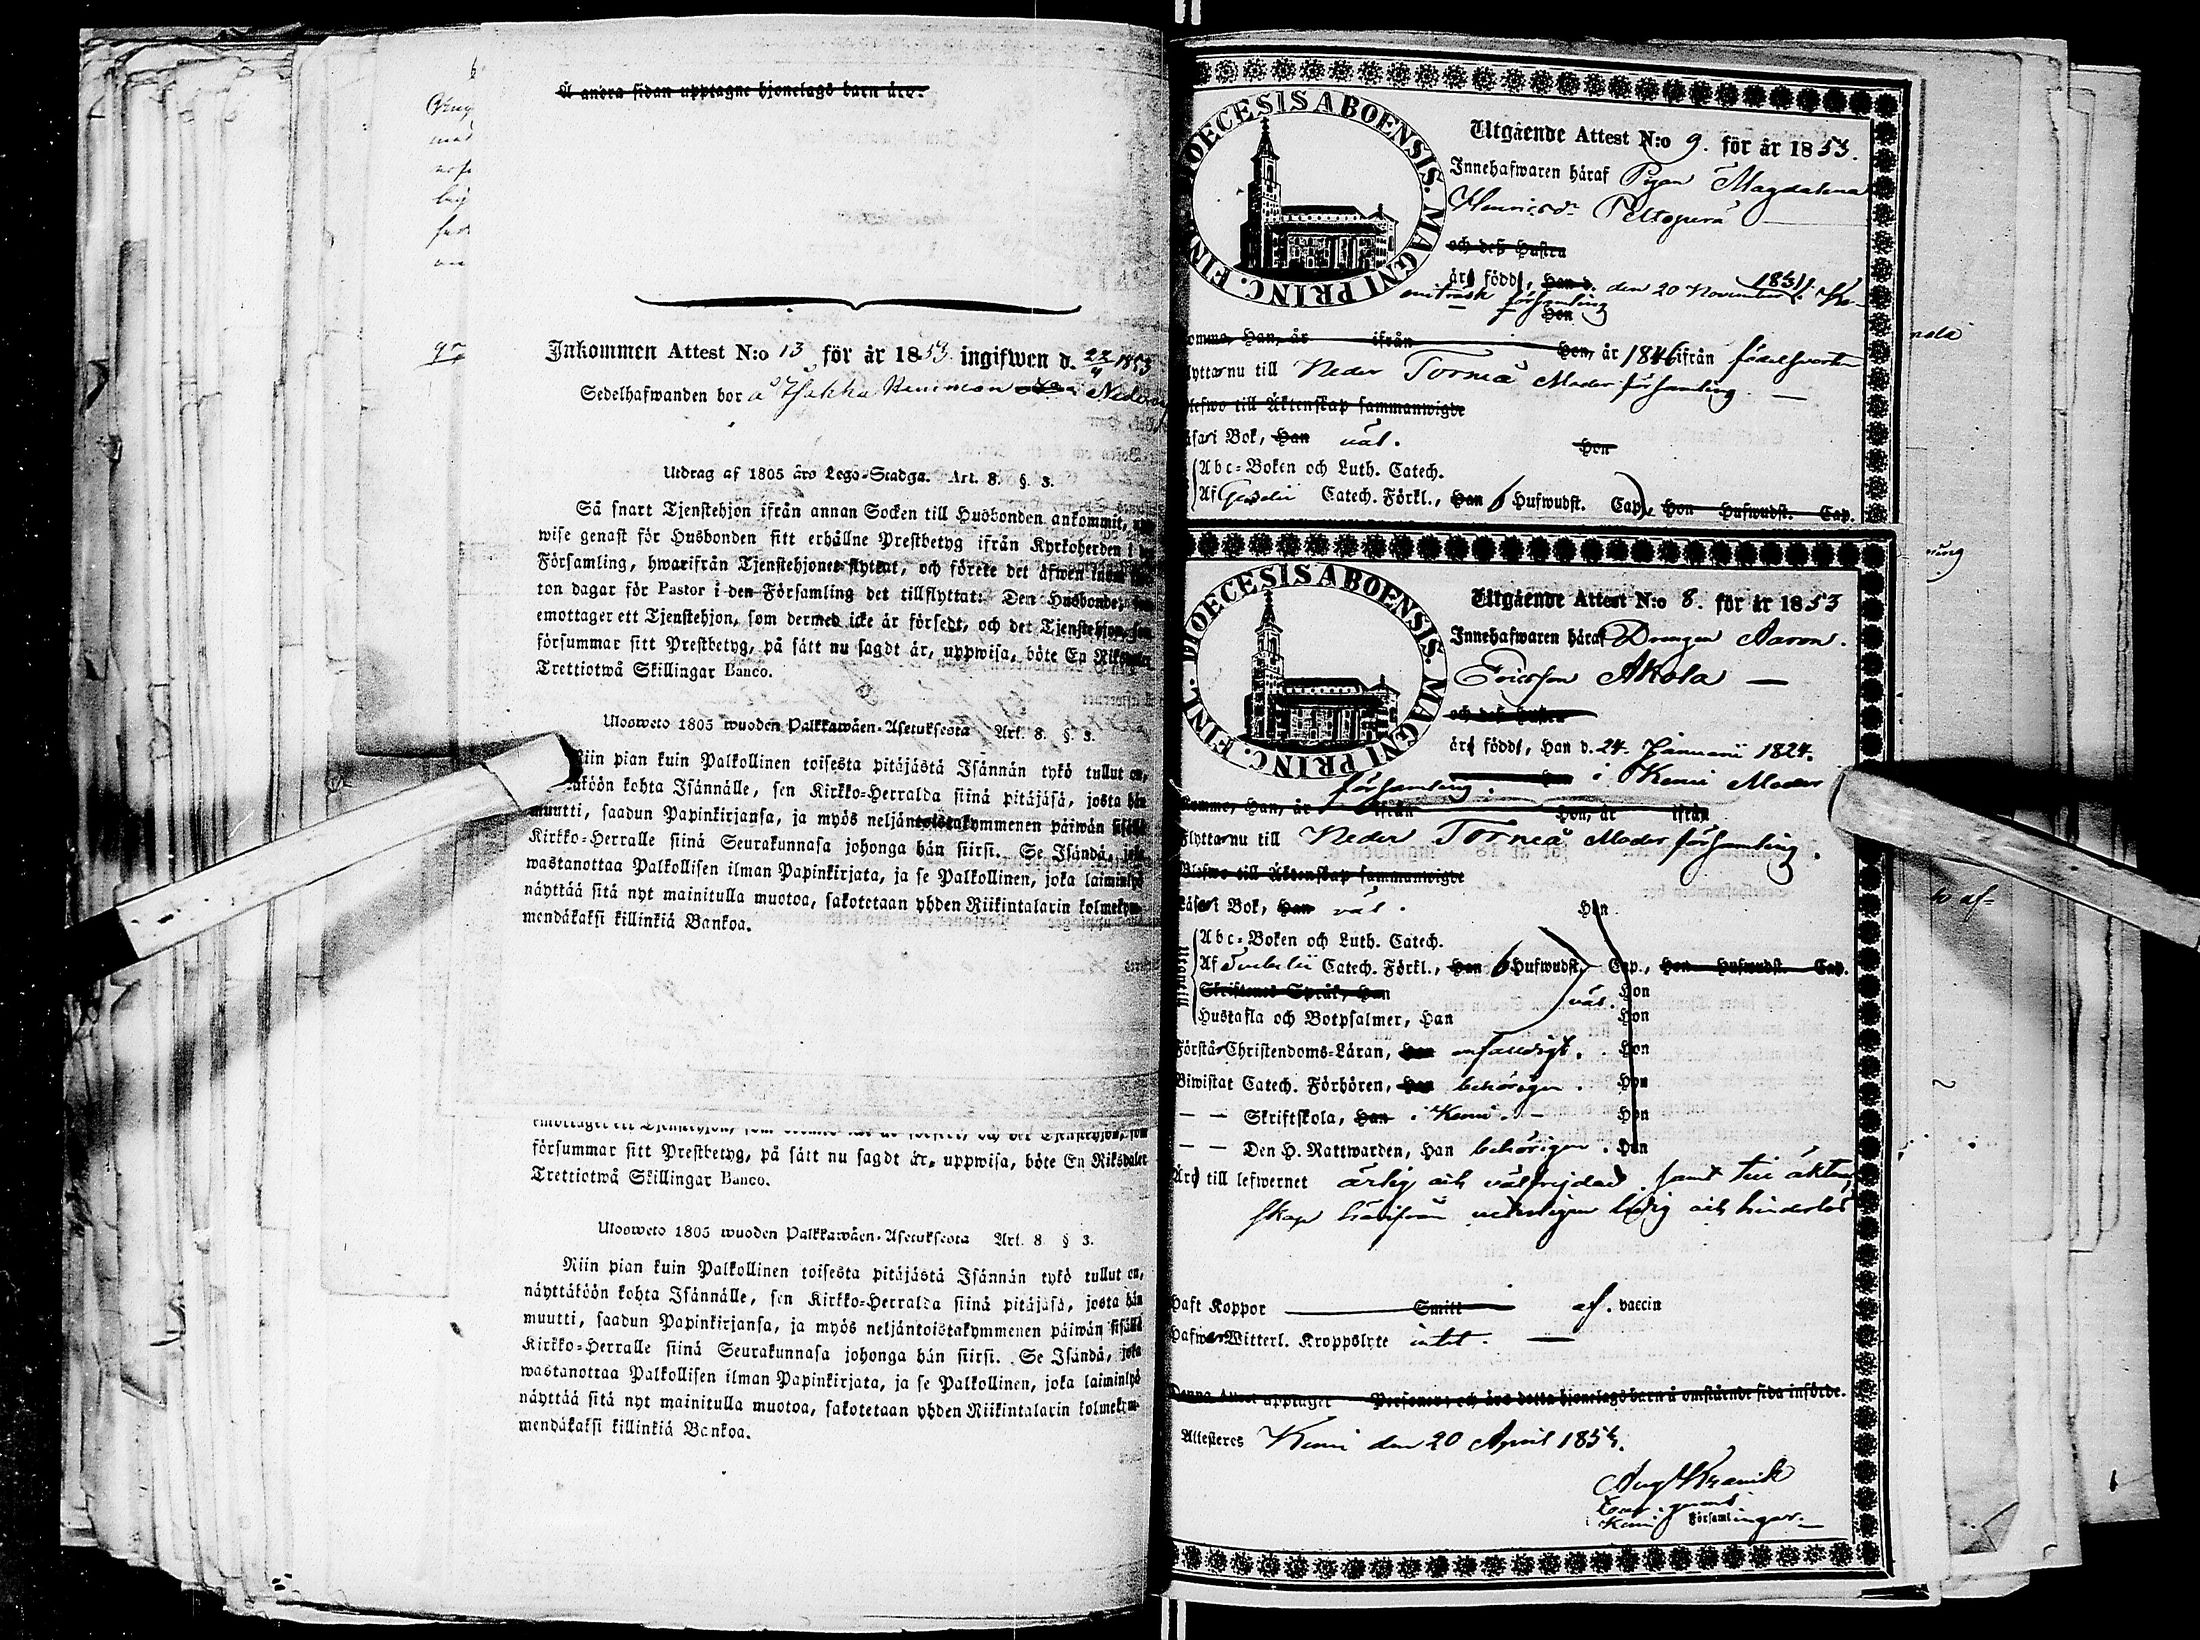 Å andra sidan upptagne hjonelags barn äro.
Inkommen Attest N:o 13 för år 1853 ingifwen d. 22/4 1853
Sedelhafwanden bor å
Utdrag af 1805 års Lego-Stadga. Art. 8. §. 3.
Så snart Tjenstehjon ifrån annan Socken till Husbonden ankommit,
wise genast för Husbonden sitt erhållne Prestbetyg ifrån Kyrkoherden i
Församling, hwarifrån Tjenstehjonet flyttat, och förete det äfwen inom
ton dagar för Pastor i den Församling det tillflyttat. Den Husbonde,
emottager ett Tjenstehjon, som dermed icke är försedt, och det Tjenstehjon,
försummar sitt Prestbetyg, på sätt nu sagdt är, uppwisa, böte En Riksdaler
Trettiotwå Skillingar Banco.
Ulosweto 1805 wuoden Palkkawäen-Asetuksesta Art. 8. §. 3.
Niin pian kuin Palkollinen toisesta pitäjästä Isännän tykö tullut on,
kohta Isännälle, sen Kirkko-Herralda siinä pitäjäsä, josta hän
muutti, saadun Papinkirjansa, ja myös neljäntoistakymmenen päiwän sisällä
Kirkko-Herralle siinä Seurakunnasa johonga hän siirsi. Se Isändä, joka
wastanottaa Palkollisen ilman Papinkirjata, ja se Palkollinen, joka laiminlyö
näyttää sitä nyt mainitulla muotoa, sakotetaan yhden Riikintalarin kolmekym-
mendäkaksi killinkiä Bankoa.
försummar sitt Prestbetyg, på sätt nu sagdt är, uppwisa, böte En Riksdaler
Trettiotwå Skillingar Banco.
Ulosweto 1805 wuoden Palkkawäen-Asetuksesta Art. 8 § 3.
Niin pian kuin Palkollinen toisesta pitäjästä Isännän tykö tullut on,
näyttäköön kohta Isännälle, sen Kirkko-Herralda siinä pitäjäsä, josta hän
muutti, saadun Papinkirjansa, ja myös neljäntoistakymmenen päiwän sisällä
Kirkko-Herralle siinä Seurakunnasa johonga hän siirsi. Se Isändä, joka
wastanottaa Palkollisen ilman Papinkirjata, ja se Palkollinen, joka laiminlyö
näyttää sitä nyt mainitulla muotoa, sakotetaan yhden Riikintalarin kolmekym-
mendäkaksi killinkiä Bankoa.
DIOECESIS ABOENSIS. MAGNI PRINC. FINL.
Utgående Attest N:o 9. för år 1853.
Innehafwaren häraf Pigan Magdalena
Henricsdr Peltoperä
och dess Hustru
äro födde, Han d. den 20 November 1831 i
församling
Hon
komme, Han, år ifrån Hon, år 1846 ifrån födelseorten
Flyttar nu till Neder Torneå Moder församling.
Blefwo till Äktenskap sammanwigde
Läsa i Bok, Han väl. Hon
Abc-Boken och Luth. Catech.
Af Catech. Förkl., Han 6 Hufwudst. Cap., Hon Hufwudst. Cap.
DIOECESIS ABOENSIS. MAGNI PRINC. FINL.
Utgående Attest N:o 8. för år 1853
Innehafwaren häraf Drengen Aaron
Ericsson Akola
och dess Hustru
äro födde, Han d. 24 Januarii 1824.
Hon i Kemi Moder
församling.
komme, Han, år ifrån Hon, år ifrån
Flyttar nu till Neder Torneå Moder församling.
Blefwo till Äktenskap sammanwigde
Läsa i Bok, Han väl. Hon
Abc-Boken och Luth. Catech.
Af Svebelii Catech. Förkl., Han 6 Hufwudst. Cap., Hon Hufwudst. Cap.
Skriftenes Språk, Han väl. Hon
Hustafla och Botpsalmer, Han Hon
Förstår Christendoms-Läran, Han enfaldigt. Hon
Biwistat Catech. Förhören, Han behörigen. Hon
— — Skriftskola, Han i Kemi. Hon
— — Den H. Nattwarden, Han behörigen. Hon
Äro till lefwernet ärlig och välfrejdad samt till äkten
skap härifrån veterligen ledig och hinderlös
Haft Koppor Smitt af. vaccin
Hafwer Witterl. Kroppslyte intet.
Denna Attest upptager Personer; och äro detta hjonelags barn å omstående sida införde.
Attesteres Kemi den 20 April 1853.
Kemi Församlingar.